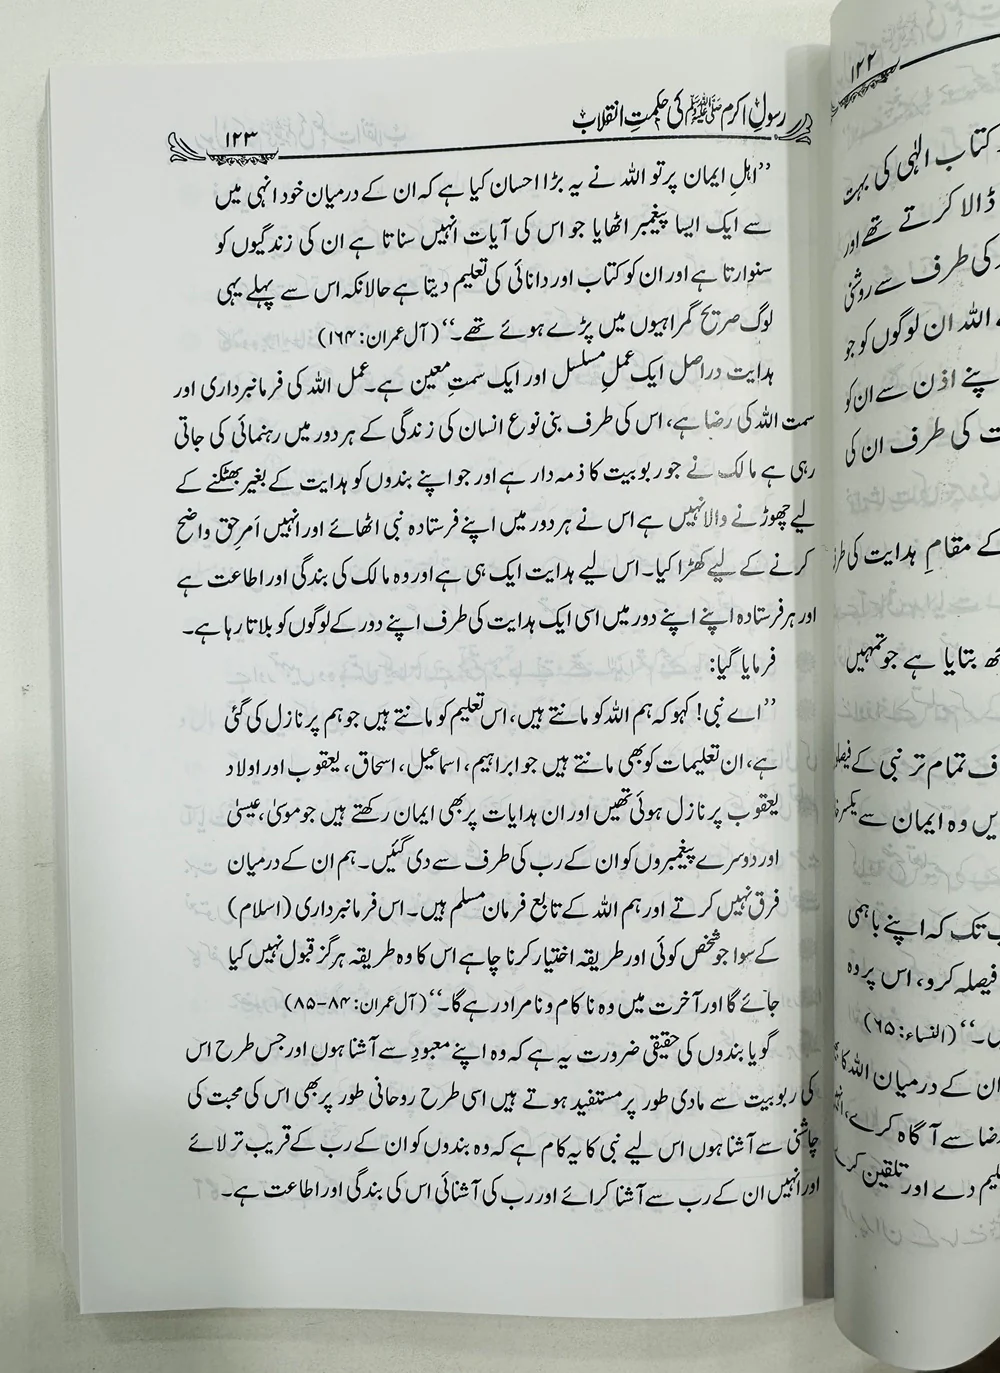 رسولِ اکرم ﷺ کی حکمتِ انقلاب
۱۲۳
’’اہلِ ایمان پر تو اللہ نے یہ بڑا احسان کیا ہے کہ ان کے درمیان خود انہی میں
سے ایک ایسا پیغمبر اٹھایا جو اس کی آیات انہیں سناتا ہے ان کی زندگیوں کو
سنوارتا ہے اور ان کو کتاب اور دانائی کی تعلیم دیتا ہے حالانکہ اس سے پہلے یہی
لوگ صریح گمراہیوں میں پڑے ہوئے تھے۔‘‘ (آل عمران: ۱۶۴)
ہدایت دراصل ایک عملِ مسلسل اور ایک سمتِ معین ہے۔ عمل اللہ کی فرمانبرداری اور
سمت اللہ کی رضا ہے، اس کی طرف بنی نوع انسان کی زندگی کے ہر دور میں رہنمائی کی جاتی
رہی ہے مالک نے جو ربوبیت کا ذمہ دار ہے اور جو اپنے بندوں کو ہدایت کے بغیر بھٹکنے کے
لیے چھوڑنے والا نہیں ہے اس نے ہر دور میں اپنے فرستادہ نبی اٹھائے اور انہیں اَمرِ حق واضح
کرنے کے لیے کھڑا کیا۔ اس لیے ہدایت ایک ہی ہے اور وہ مالک کی بندگی اور اطاعت ہے
اور ہر فرستادہ اپنے اپنے دور میں اسی ایک ہدایت کی طرف اپنے دور کے لوگوں کو بلاتا رہا ہے۔
فرمایا گیا:
’’اے نبی! کہو کہ ہم اللہ کو مانتے ہیں، اس تعلیم کو مانتے ہیں جو ہم پر نازل کی گئی
ہے، ان تعلیمات کو بھی مانتے ہیں جو ابراہیم، اسماعیل، اسحاق، یعقوب اور اولاد
یعقوب پر نازل ہوئی تھیں اور ان ہدایات پر بھی ایمان رکھتے ہیں جو موسیٰ، عیسیٰ
اور دوسرے پیغمبروں کو ان کے رب کی طرف سے دی گئیں۔ ہم ان کے درمیان
فرق نہیں کرتے اور ہم اللہ کے تابع فرمان مسلم ہیں۔ اس فرمانبرداری (اسلام)
کے سوا جو شخص کوئی اور طریقہ اختیار کرنا چاہے اس کا وہ طریقہ ہرگز قبول نہیں کیا
جائے گا اور آخرت میں وہ ناکام و نامراد رہے گا۔‘‘ (آل عمران: ۸۴-۸۵)
گویا بندوں کی حقیقی ضرورت یہ ہے کہ وہ اپنے معبود سے آشنا ہوں اور جس طرح اس
کی ربوبیت سے مادی طور پر مستفید ہوتے ہیں اسی طرح روحانی طور پر بھی اس کی محبت کی
چاشنی سے آشنا ہوں اس لیے نبی کا یہ کام ہے کہ وہ بندوں کو ان کے رب کے قریب تر لائے
اور انہیں ان کے رب سے آشنا کرائے اور رب کی آشنائی اس کی بندگی اور اطاعت ہے۔
۱۲۲
کتاب الٰہی کی بہت
ڈالا کرتے تھے اور
کی طرف سے روشنی
اللہ ان لوگوں کو جو
اپنے اذن سے ان کو
کی طرف ان کی
کے مقامِ ہدایت کی
بتایا ہے جو تمہیں
تمام تر نبی کے
وہ ایمان سے یکسر
تک کہ اپنے باہمی
فیصلہ کرو، اس پر وہ
(النساء: ۶۵)
ان کے درمیان اللہ کا
رضا سے آگاہ کرے،
دے اور تلقین